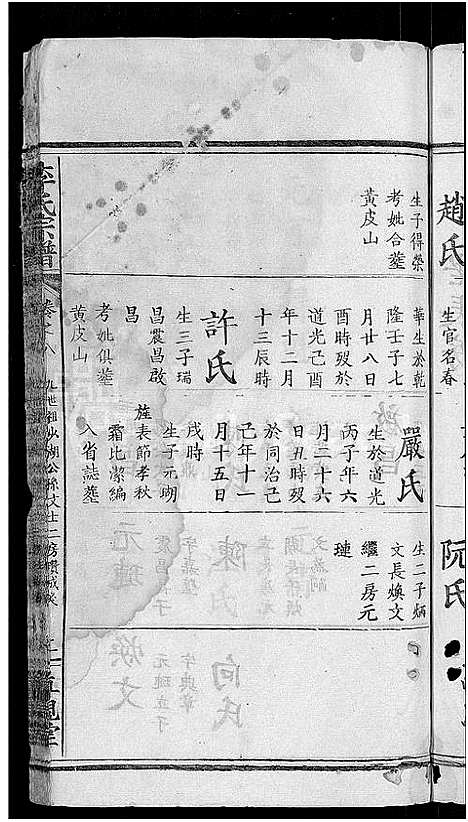 趙氏
生官名春
阮氏
生子得榮
考妣合塟
黃皮山
華生於乾
隆壬子七
月廿八日
酉時歿於
道光己酉
年十二月
十三辰時
許氏
生三子瑞
昌震昌啟
昌
考妣俱塟
黃皮山
嚴氏
生於道光
丙子年六
月二十六
日丑時歿
於同治己
己年十一
月十五日
戌時
生子元瑚
旌表節孝秋
霜比潔編
入省誌塟
生二子炳
文長煥文
繼二房元
璉
李氏宗譜
卷之八